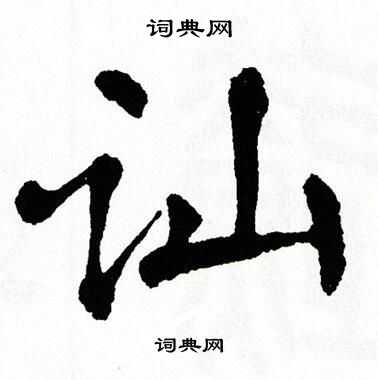 词典网
讪
词典网